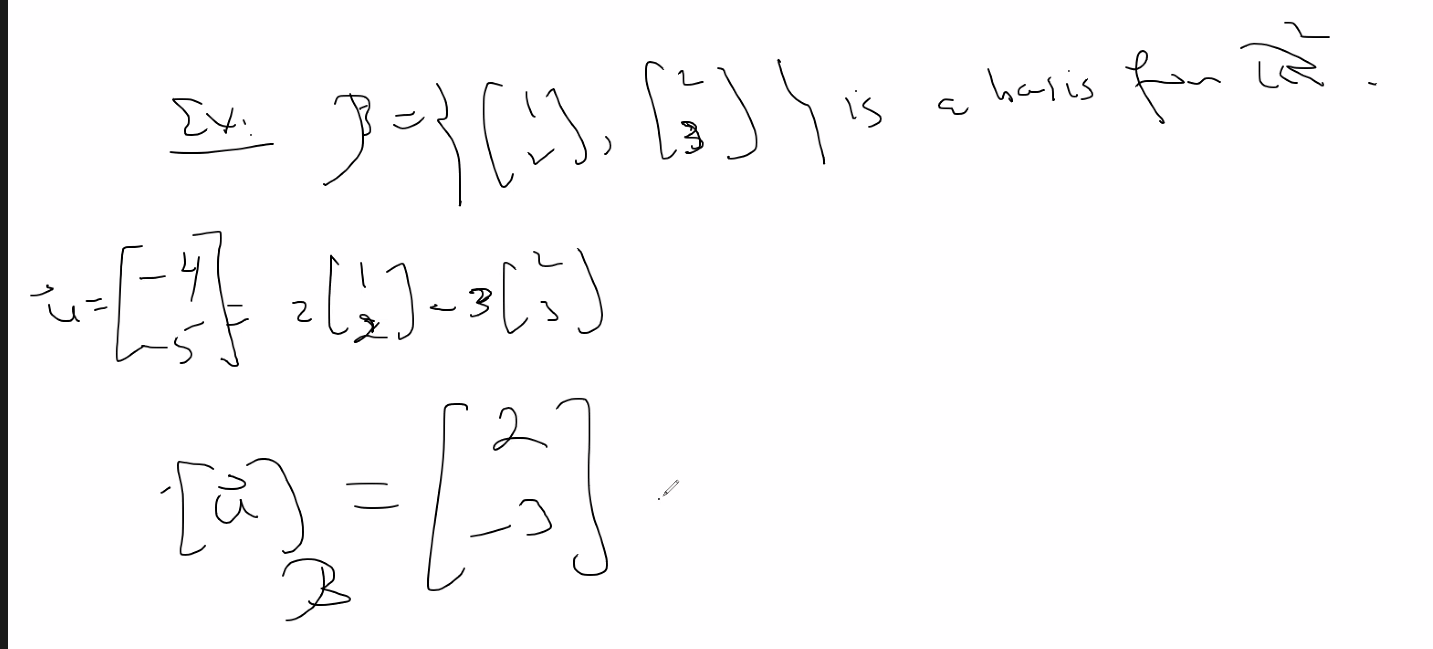 Ex: B = { [1 2], [2 3] } is a basis for ℝ².
u⃗ = [-4 -5] = 2[1 2] - 3[2 3]
[u⃗]_B = [2 -3]